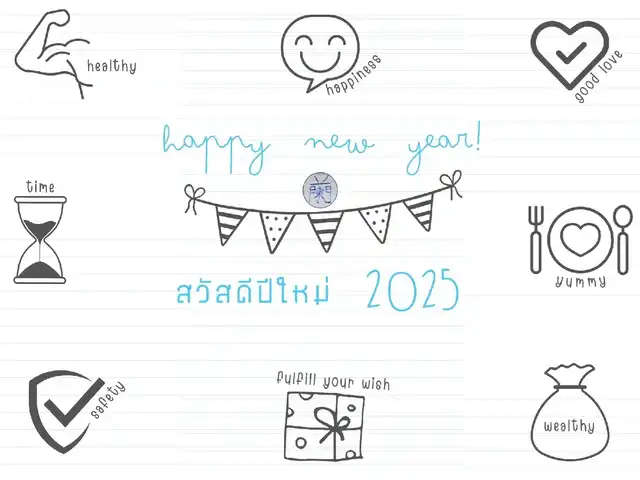 healthy
happiness
good love
happy new year!
time
สวัสดีปีใหม่ 2025
yummy
safety
fulfill your wish
wealthy